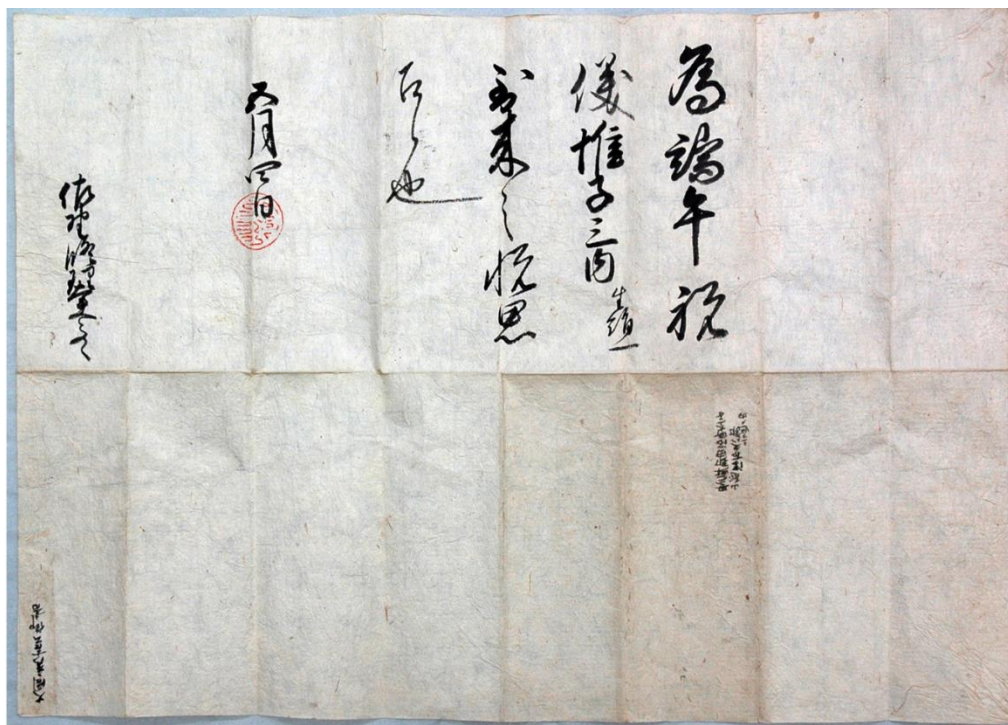 為端午祝
儀帷子三内生絹一
到来候悦思
召候也
五月四日
佐野修理大夫とのへ